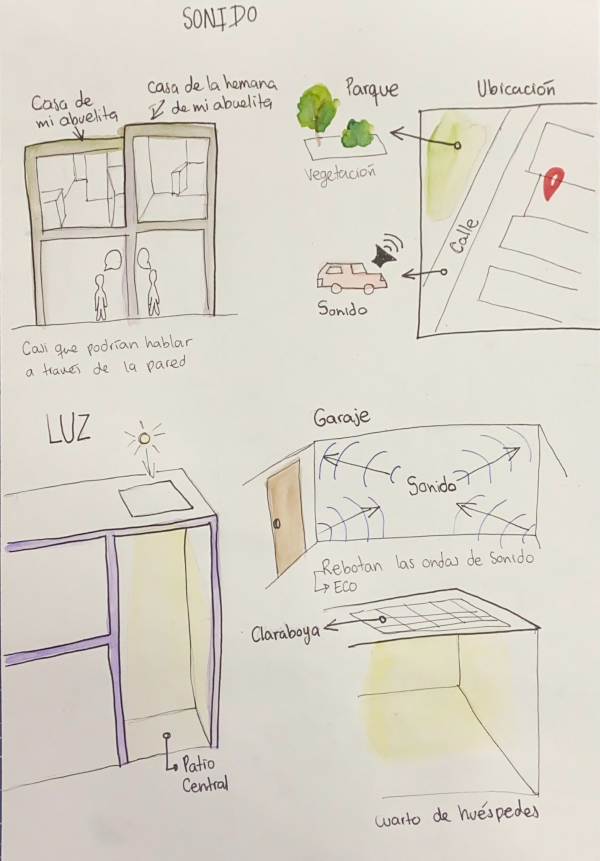 SONIDO
Casa de
mi abuelita
casa de la hemana
de mi abuelita
Casi que podrían hablar
a través de la pared
Parque
Vegetación
Ubicación
Calle
Sonido
LUZ
Patio
Central
Garaje
Sonido
Rebotan las ondas de sonido
ECO
Claraboya
cuarto de huéspedes